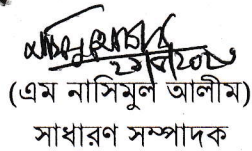 (এম নাসিমুল আলীম)
সাধারণ সম্পাদক